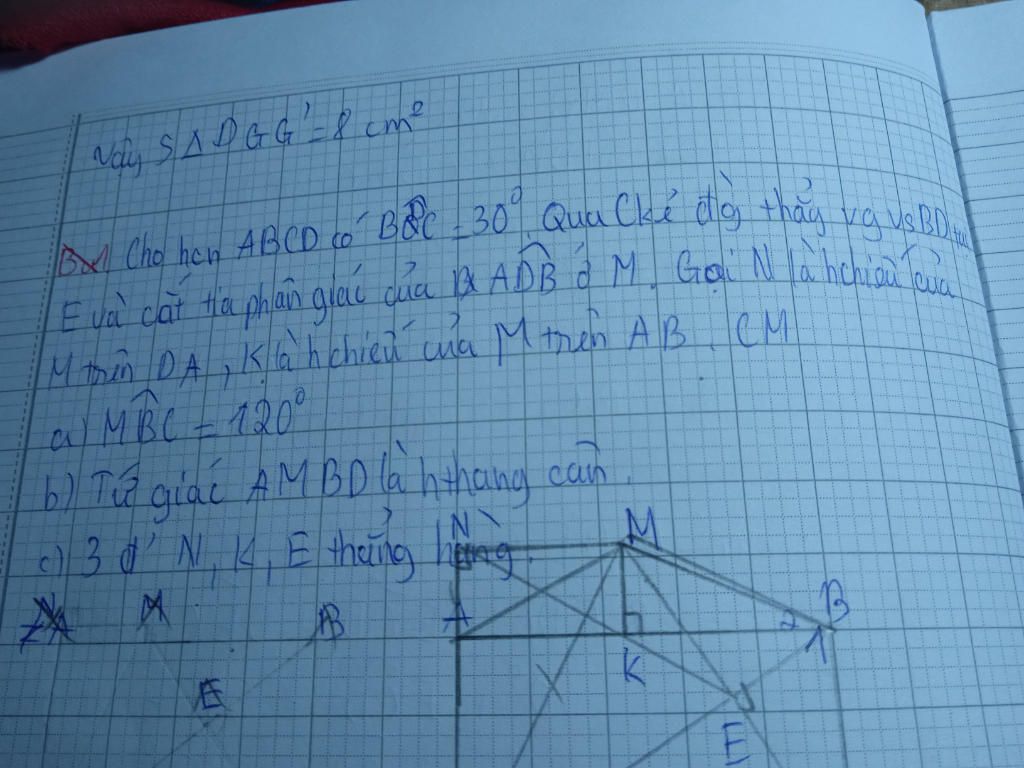 Vậy SΔDGG' = 8 cm²
Cho hcn ABCD có BDC = 30° Qua C kẻ đg thẳng vg vs BD tại
E và cắt tia phân giác của ADB ở M. Gọi N là hchiếu của
M trên DA, K là hchiếu của M trên AB. CM
a) MBC = 120°
b) Tứ giác AMBD là hthang cân.
c) 3 đ' N, K, E thẳng hàng.
N M
A 2 B
1
K
A M B
E
E